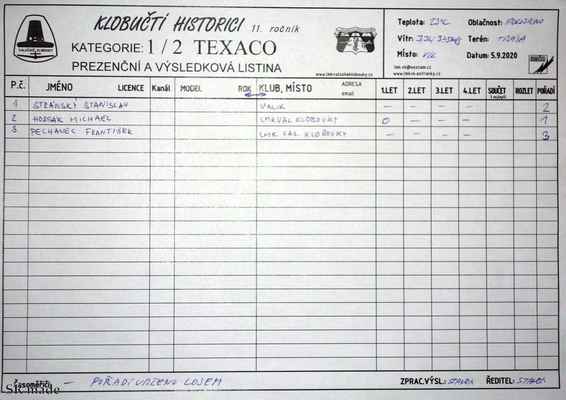 KLOBUČTÍ HISTORICI 11. ročník
KATEGORIE: 1 / 2 TEXACO
PREZENČNÍ A VÝSLEDKOVÁ LISTINA
Teplota: 23°C Oblačnost:
Vítr: Terén:
Místo: Datum: 5.9.2020
P.č. JMÉNO LICENCE Kanál MODEL ROK KLUB, MÍSTO ADRESA email 1.LET 2.LET 3.LET 4.LET SOUČET ROZLET POŘADÍ
1 STRÁNSKÝ STANISLAV VALIK — — — — 2
2 HORSÁK MICHAEL LMK VAL. KLOBOUKY 0 — — — 1
3 PECHANEC FRANTIŠEK LMK VAL. KLOBOUKY — — — — 3
Časoměřiči: — POŘADÍ URČENO LOSEM ZPRAC.VÝSL.: ŘEDITEL: